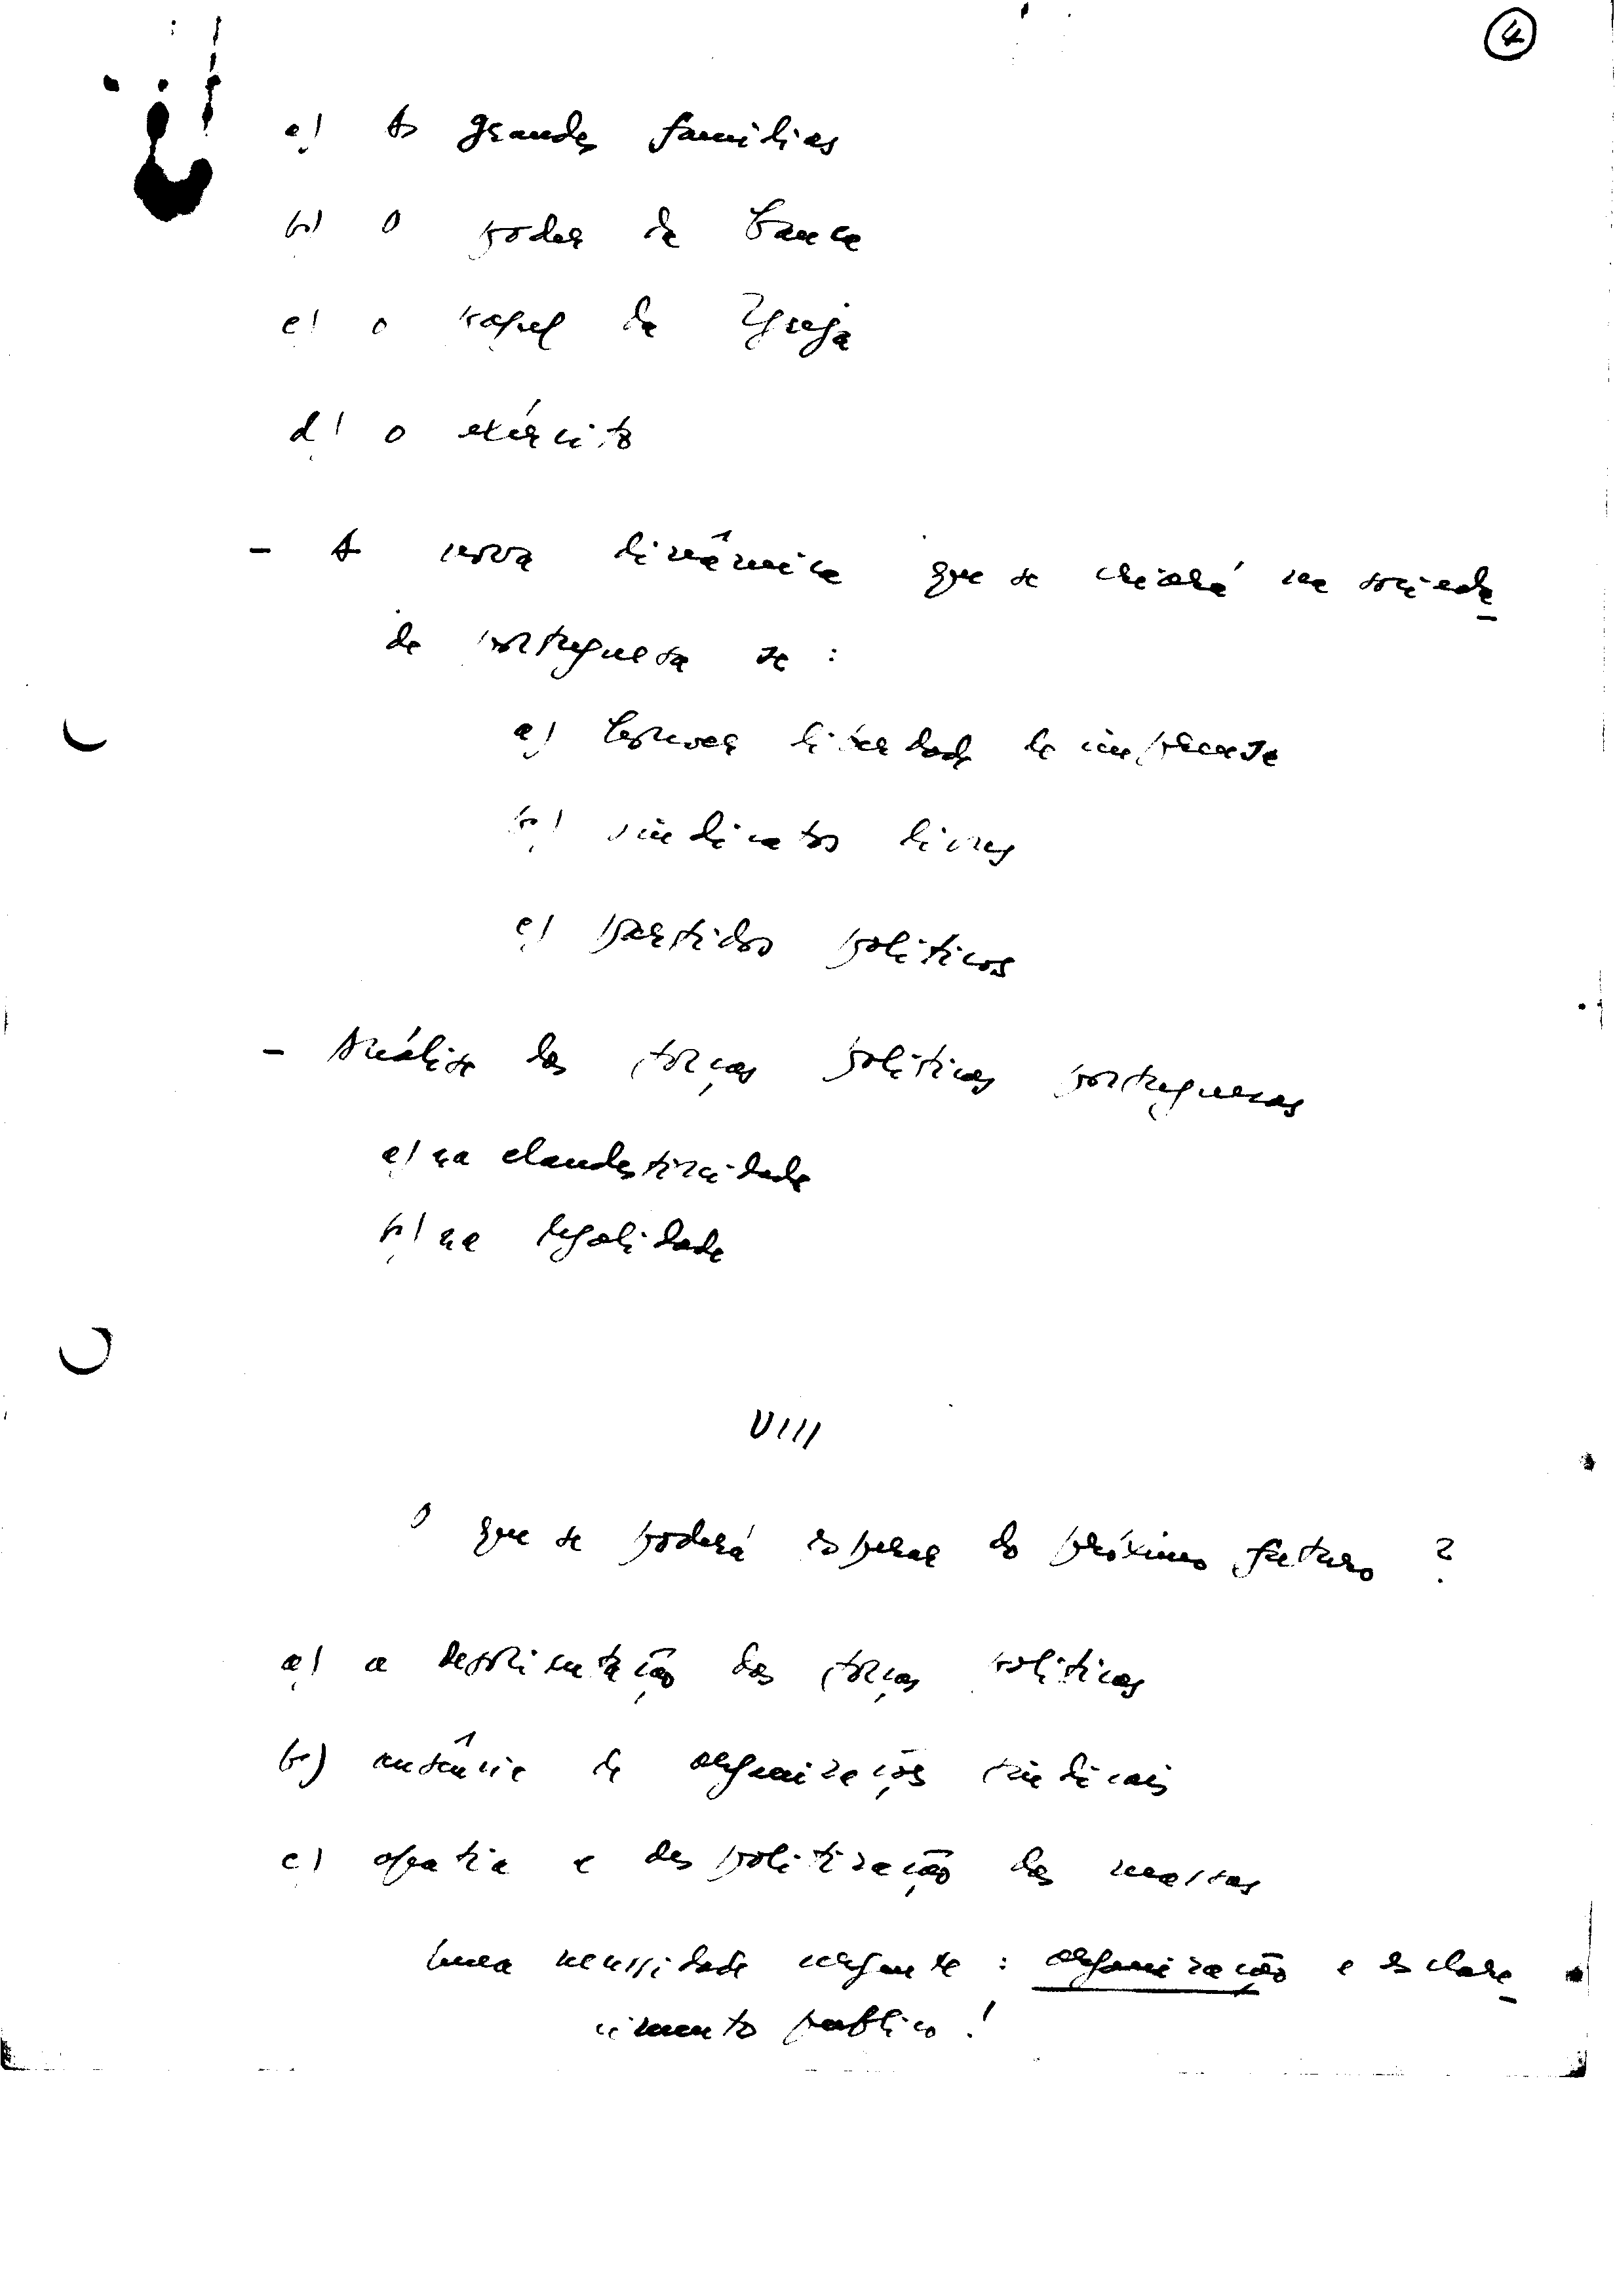 4
a) As grandes familias
b) O poder da banca
c) o papel da Igreja
d) o exército
- A nova dinâmica que se criará na socieda
de portuguesa se:
a) houver liberdade de imprensa
b) sindicatos livres
c) partidos politicos
- Análise das forças politicas portuguesas
a) na clandestinidade
b) na legalidade
VIII
O que se poderá esperar do próximo futuro?
a) a das forças politicas
b) ausência de organizações sindicais
c) apatia e despolitização das massas
Uma necessidade urgente: organização e esclare
cimento publico!